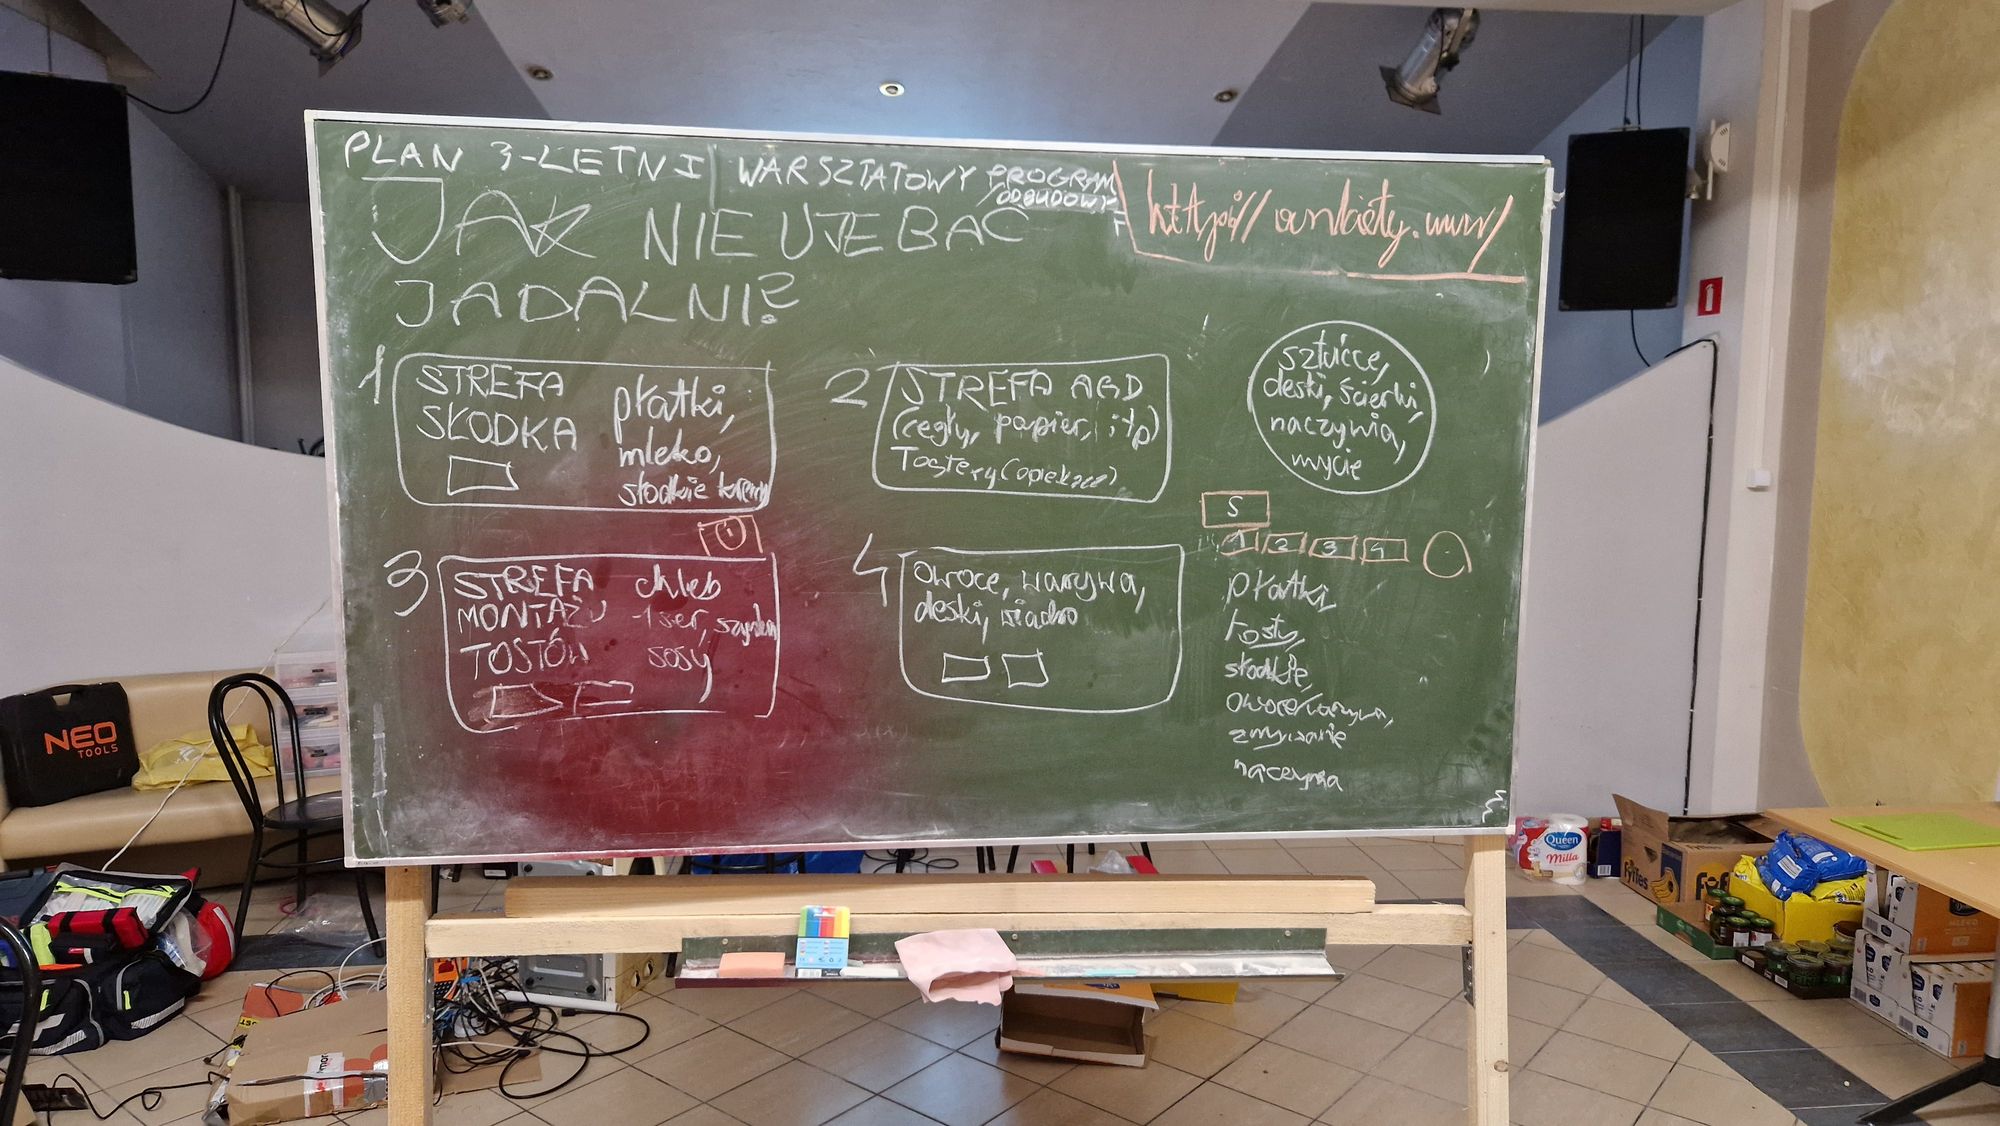 PLAN 3-LETNI WARSZTATOWY PROGRAM
ODBUDOWY
JAK NIE UJEBAĆ
JADALNI?
http:// ankiety.www/
1
STREFA
SŁODKA
płatki,
mleko,
słodkie kremy
2
STREFA AGD
(cegły, papier, itp)
Tostery (opiekacz)
sztućce,
deski, ścierki,
naczynia,
mycie
3
STREFA
MONTAŻU
TOSTÓW
chleb
ser, szynka,
sosy
4
owoce, warzywa,
deski, wiadro
S
1 2 3 4
płatki,
tosty,
słodkie,
owoce/warzywa,
zmywanie
naczynia
NEO
TOOLS
Queen
Milla
Fyffes